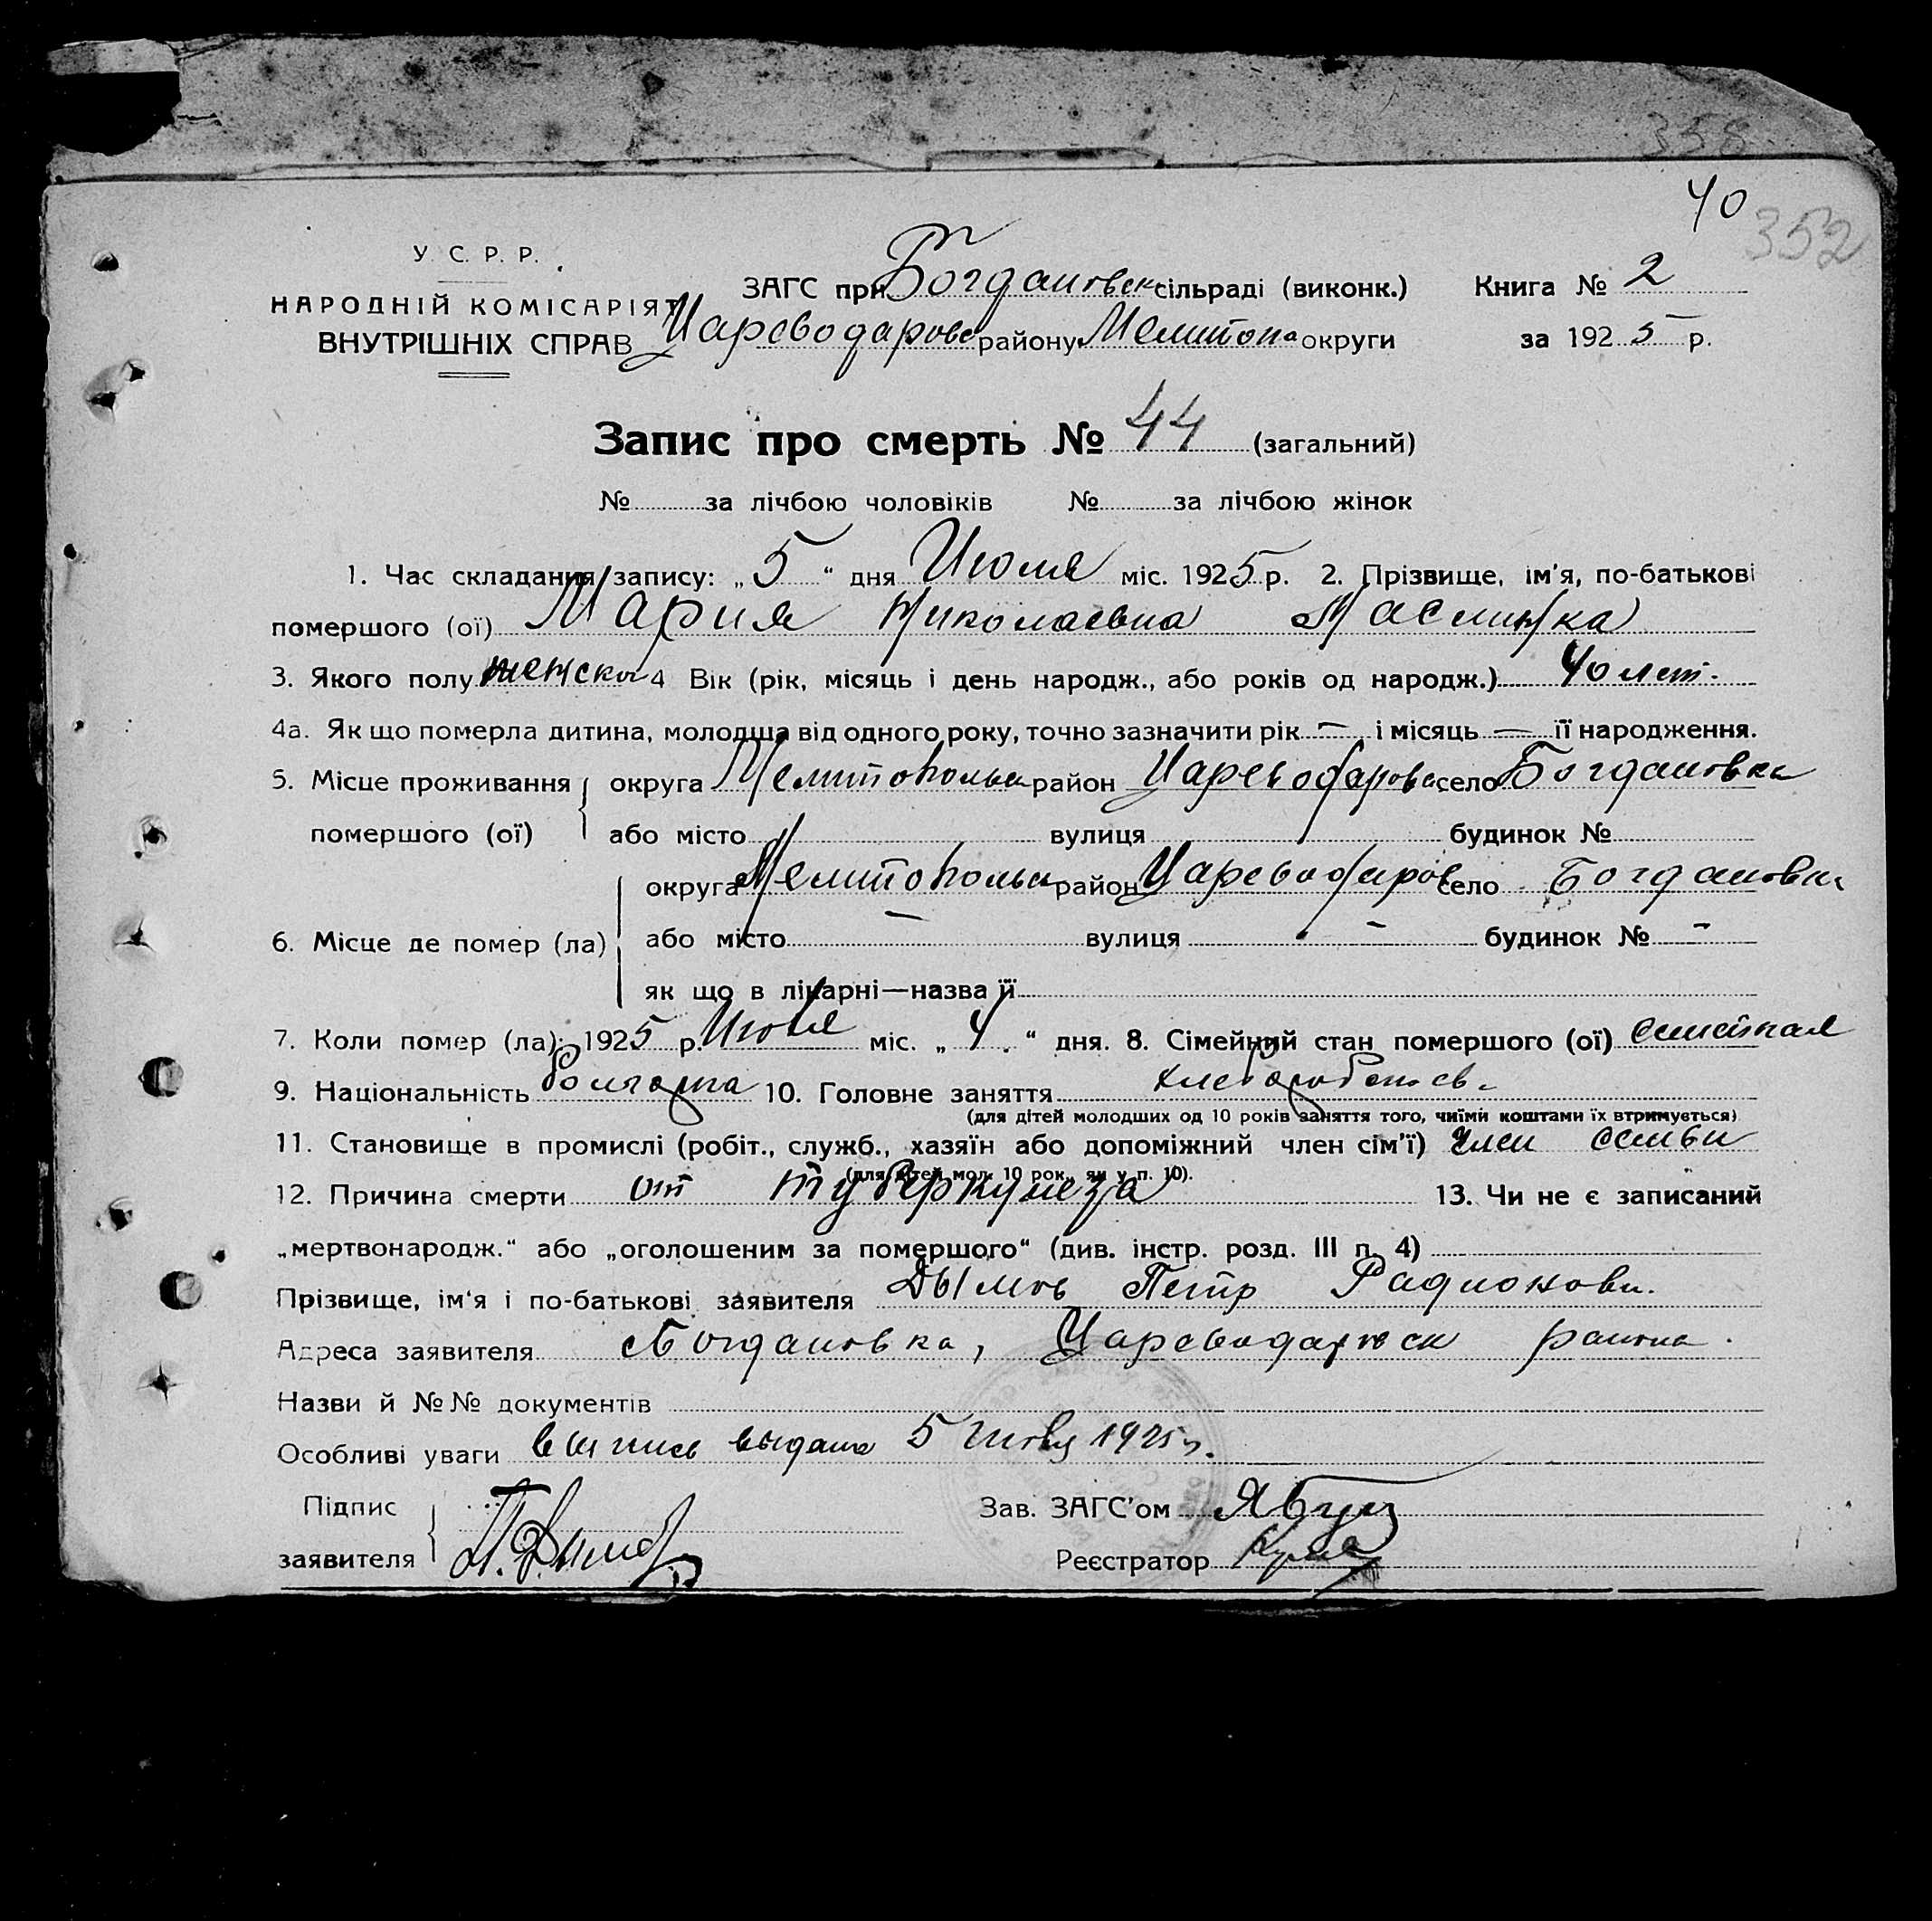 358
40
352
У. С. Р. Р.
НАРОДНІЙ КОМІСАРІЯТ
ВНУТРІШНІХ СПРАВ
ЗАГС при Богдановск сільраді (виконк.) Книга № 2
Цареводаровс району Мелитопо округи за 1925 р.
Запис про смерть № 44 (загальний)
№ за лічбою чоловіків № за лічбою жінок
1. Час складання запису: „5“ дня Июля міс. 1925 р. 2. Прізвище, ім'я, по-батькові
помершого (ої) Мария Николаевна
3. Якого полу женско 4 Вік (рік, місяць і день народж., або років од народж.) 40 лет.
4а. Як що померла дитина, молодша від одного року, точно зазначити рік — і місяць — її народження.
5. Місце проживання округа Мелитопольск район Цареводаровс село Богдановка
помершого (ої) або місто вулиця будинок №
округа Мелитопольск район Цареводаров село Богдановка
6. Місце де помер (ла) або місто — вулиця — будинок № —
як що в лікарні—назва її
7. Коли помер (ла): 1925 р. Июля міс. „4“ дня. 8. Сімейний стан помершого (ої)
9. Національність болгарка 10. Головне заняття
(для дітей молодших од 10 років заняття того, чиїми коштами їх втримується)
11. Становище в промислі (робіт., служб., хазяїн або допоміжний член сім'ї) член семьи
(для дітей мол. 10 рок. як у п. 10).
12. Причина смерти от туберкулеза 13. Чи не є записаний
„мертвонародж.“ або „оголошеним за помершого“ (див. інстр. розд. III п. 4)
Прізвище, ім'я і по-батькові заявителя Дымов Петр Радионови.
Адреса заявителя Богдановка, Цареводаровск района.
Назви й №№ документів
Особливі уваги выпись выдана 5 июля 1925 г.
Підпис
заявителя П. Дымов
Зав. ЗАГС'ом
Реєстратор